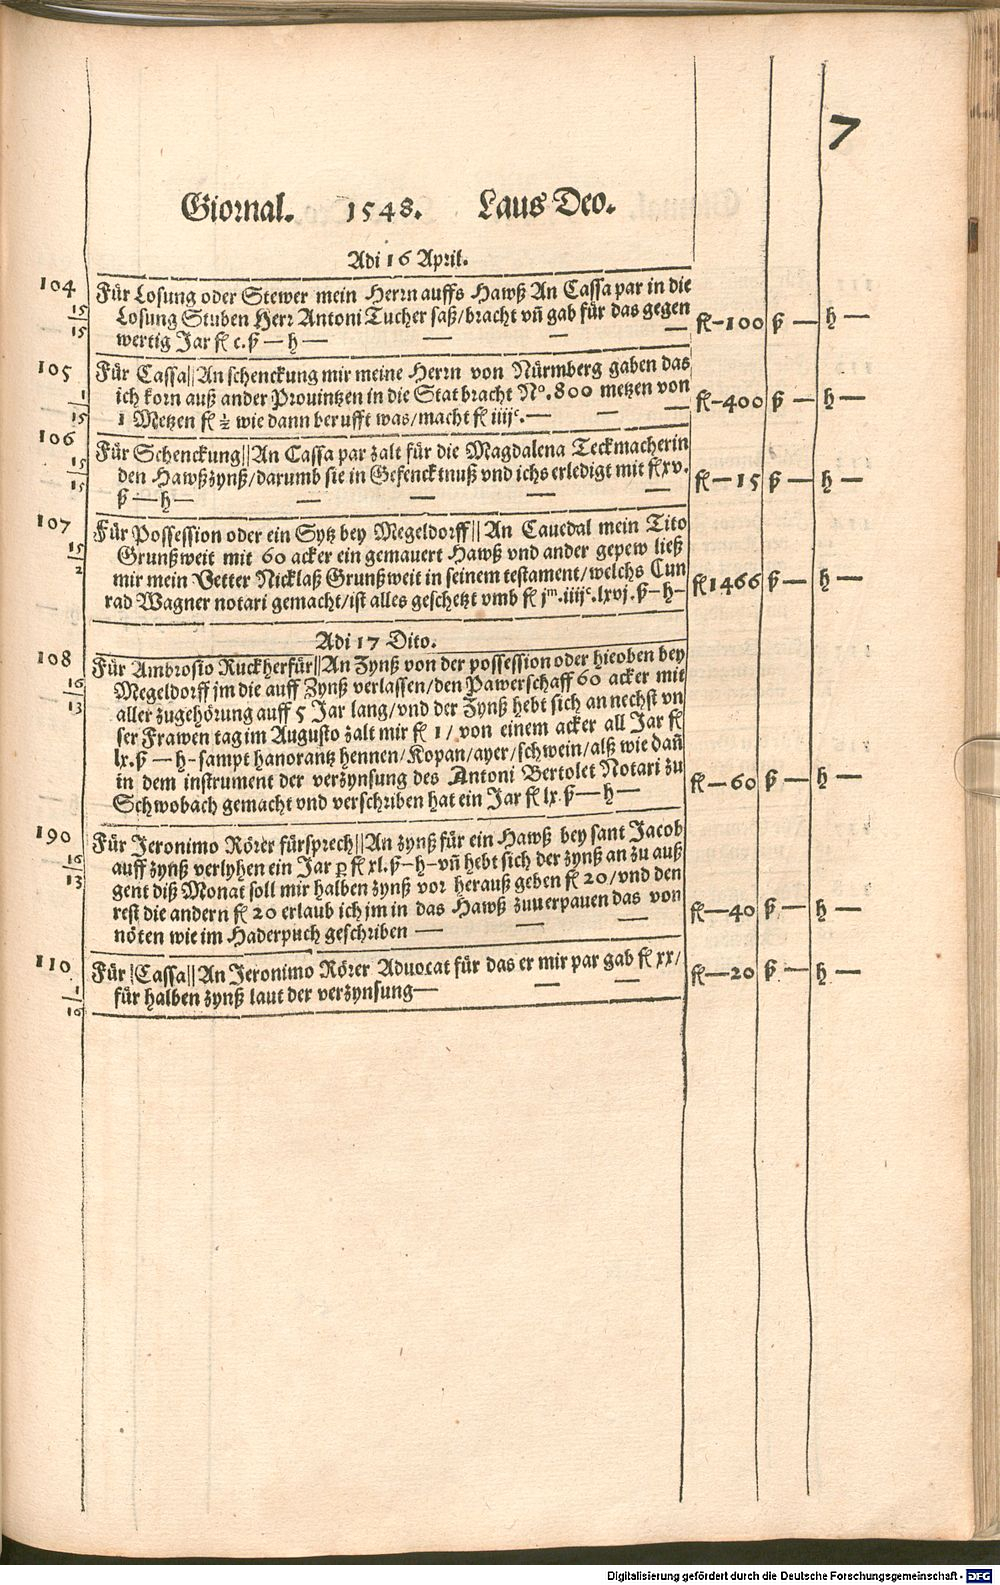 7
Giornal. 1548. Laus Deo.
Adi 16 April.
104 Für Losung oder Stewer mein Herrn auffs Hawß An Cassa par in die
15 Losung Stuben Herr Antoni Tucher saß/bracht vñ gab für das gegen
15 wertig Jar fl c.ß — h — — — — fl-100 ß — h —
105 Für Cassa||An schenckung mir meine Herrn von Nürmberg gaben das
1 ich korn auß ander Prouintzen in die Stat bracht No.800 metzen von
15 1 Metzen fl ½ wie dann berufft was/macht fl iiijc.— — — fl-400 ß — h —
106 Für Schenckung||An Cassa par zalt für die Magdalena Teckmacherin
15 den Hawßzynß/darumb sie in Gefencktnuß vnd ichs erledigt mit fl xv.
15 ß — h — — — — — fl — 15 ß — h —
107 Für Possession oder ein Sytz bey Megeldorff|| An Cauedal mein Tito
15 Grunßweit mit 60 acker ein gemauert Hawß vnd ander gepew ließ
2 mir mein Vetter Nicklaß Grunßweit in seinem testament/welchs Cun
rad Wagner notari gemacht/ist alles geschetzt vmb fl jm.iiijc.lxvj.ß—h— fl 1466 ß — h —
Adi 17 Dito.
108 Für Ambrosio Ruckherfür||An Zynß von der possession oder hieoben bey
16 Megeldorff jm die auff Zynß verlassen/den Pawerschaff 60 acker mit
13 aller zugehörung auff 5 Jar lang/vnd der Zynß hebt sich an nechst vn
ser Frawen tag im Augusto zalt mir fl 1/ von einem acker all Jar fl
lx.ß — h-sampt hanorantz hennen/Kopan/ayer/schwein/alß wie dañ
in dem instrument der verzynsung des Antoni Bertolet Notari zu
Schwobach gemacht vnd verschriben hat ein Jar fl lx.ß—h— fl — 60 ß — h —
190 Für Jeronimo Rörer fürsprech||An zynß für ein Hawß bey sant Jacob
16 auff zynß verlyhen ein Jar ꝑ fl xl.ß-h-vñ hebt sich der zynß an zu auß
13 gent diß Monat soll mir halben zynß vor herauß geben fl 20/vnd den
rest die andern fl 20 erlaub ich jm in das Hawß zuuerpauen das von
nöten wie im Haderpuch geschriben — — — fl — 40 ß — h —
110 Für |Cassa||An Jeronimo Rörer Aduocat für das er mir par gab fl xx/
1 für halben zynß laut der verzynsung— — — fl — 20 ß — h —
16
Digitalisierung gefördert durch die Deutsche Forschungsgemeinschaft - DFG